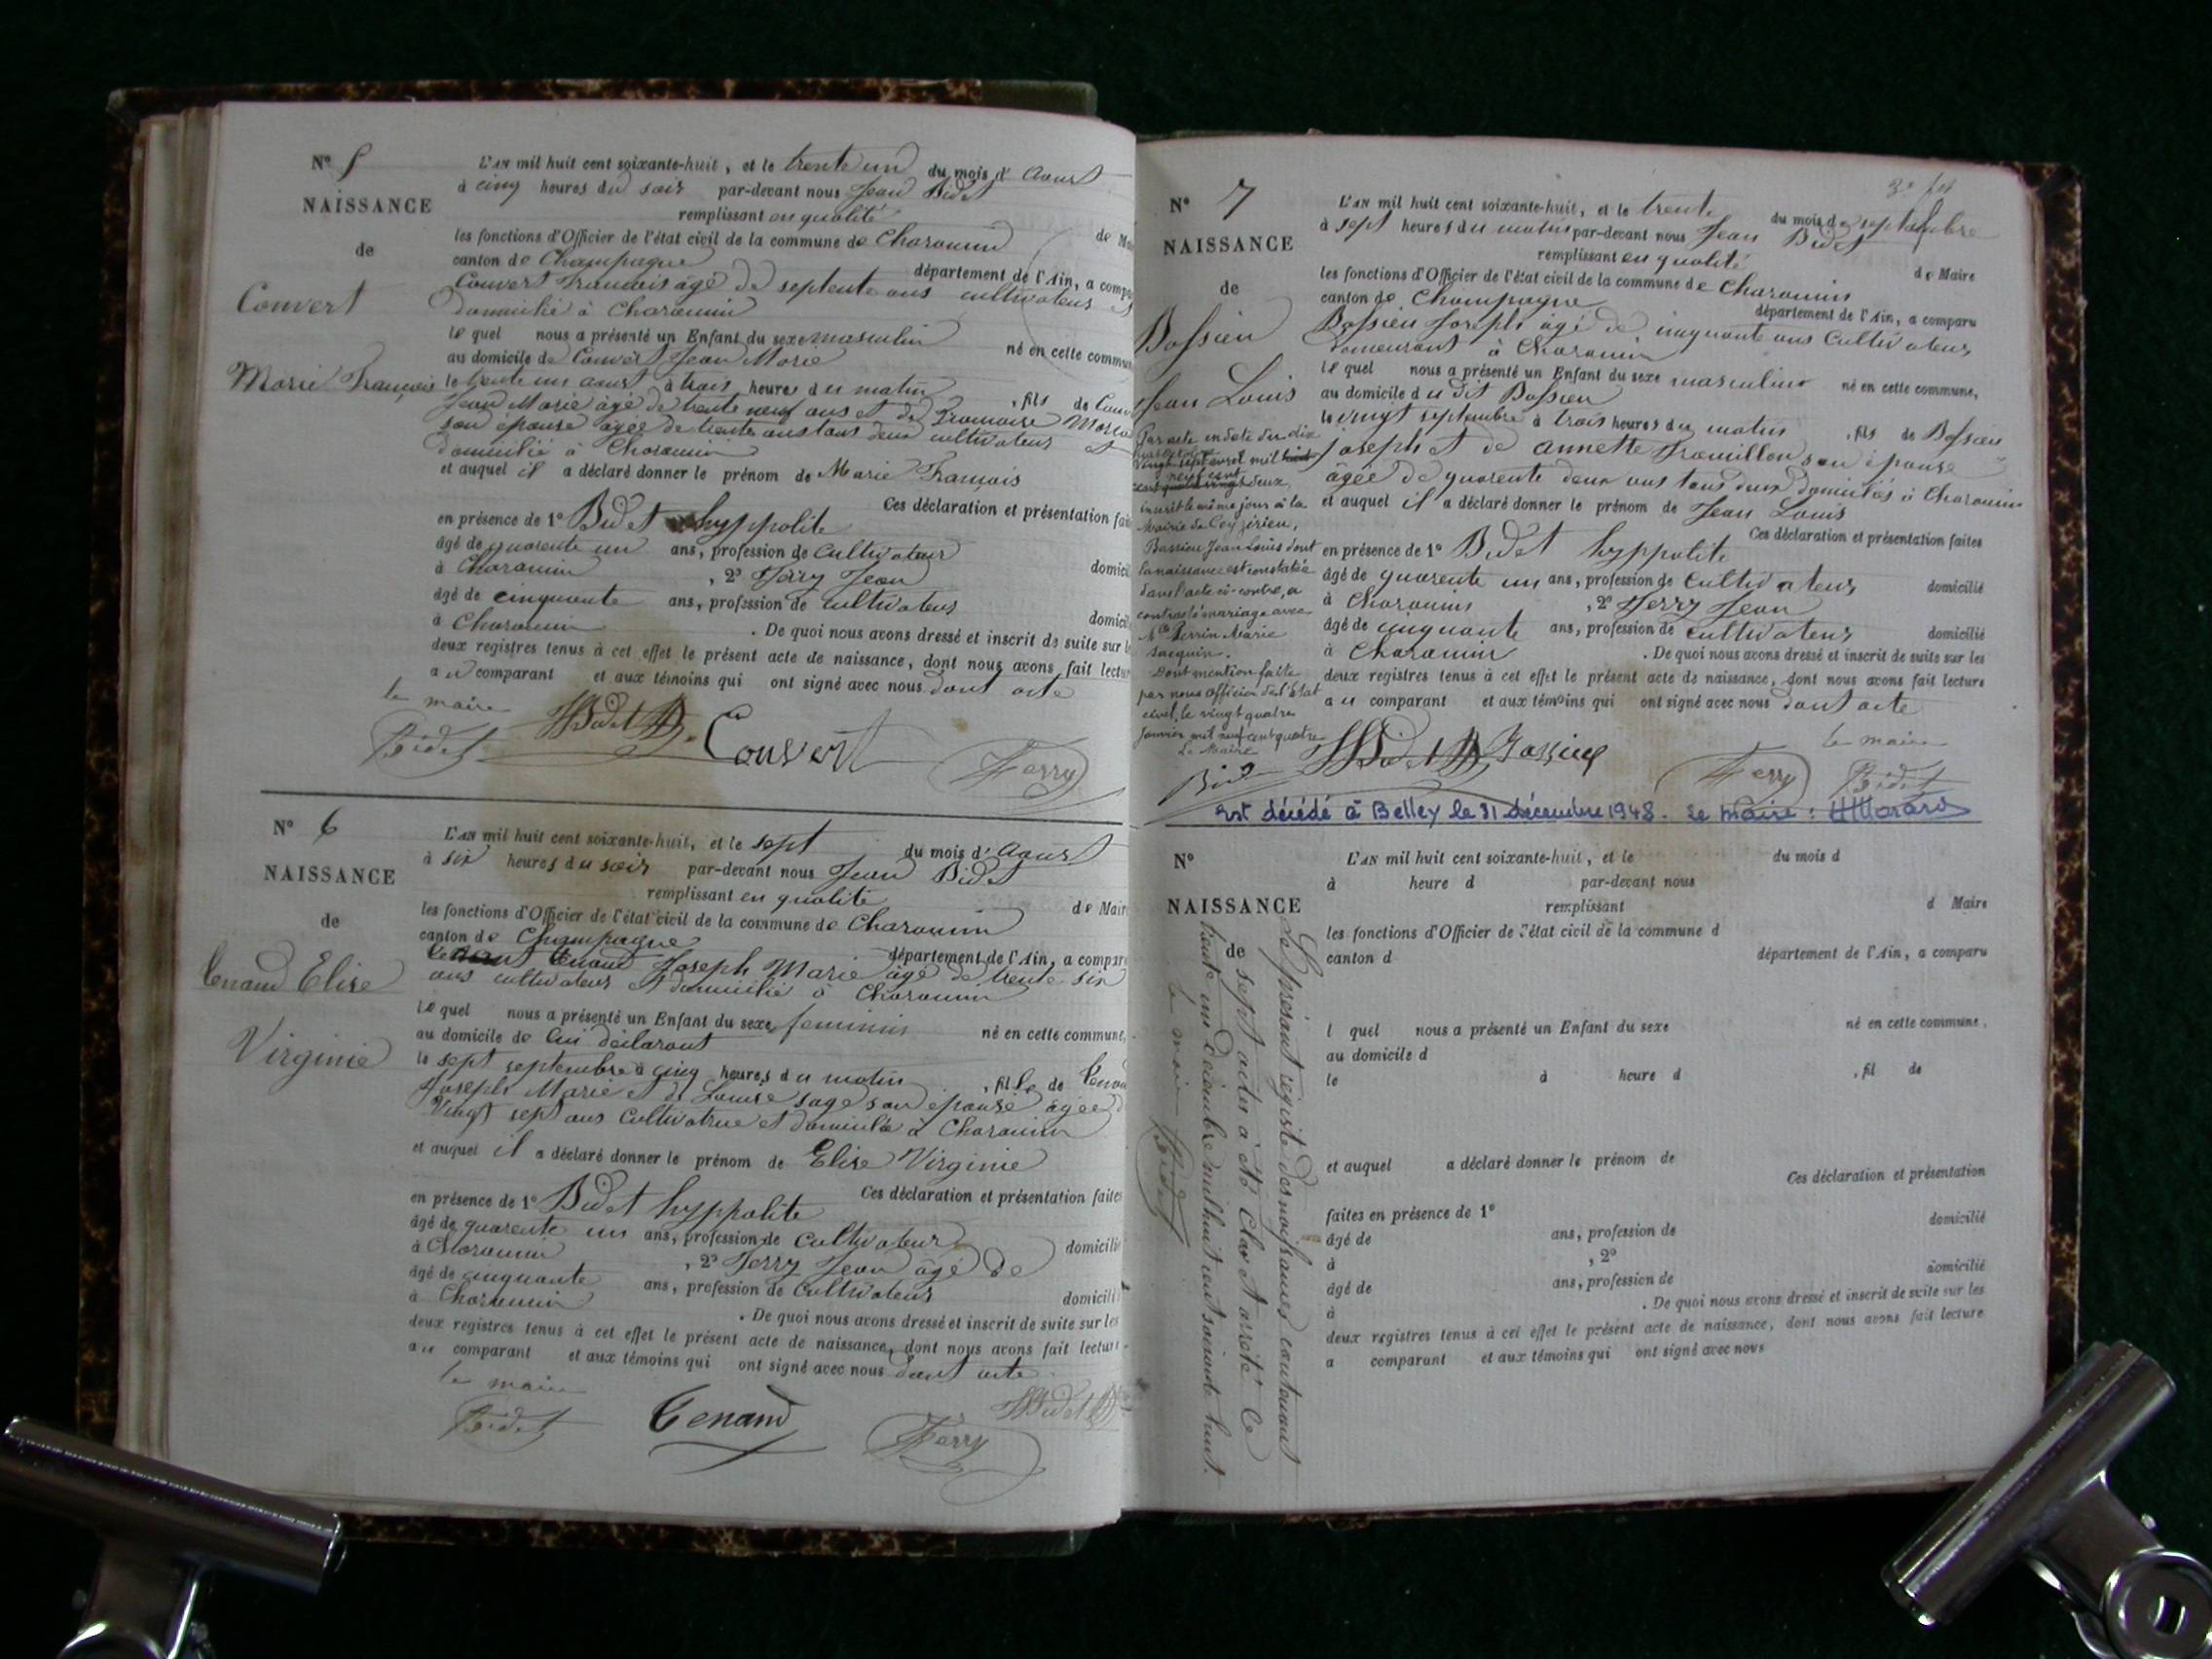 N° 5
NAISSANCE
de
Convert
Marie François
L'AN mil huit cent soixante-huit, et le trente un du mois d' Aoust
à cinq heures du soir par-devant nous Jean Bidet
remplissant en qualité de M
les fonctions d'Officier de l'état civil de la commune de Charancin
canton de Champagne département de l'Ain, a compa
Convert Francois âgé de septente ans cultivateur
domicilié à Charancin
lequel nous a présenté un Enfant du sexe masculin né en cette commun
au domicile de Convert Jean Marie
le trente un aoust à trois heures du matin, fils de Conv
Jean Marie âgé de trente neuf ans et de
son épouse âgée de trente ans tous deux cultivateurs et
domicilié à Charancin
et auquel il a déclaré donner le prénom de Marie François
Ces déclaration et présentation fai
en présence de 1° Bidet hyppolite
âgé de quarente un ans, profession de cultivateur domici
à Charancin, 2° Ferry Jean
âgé de cinquante ans, profession de cultivateur domicil
à Charancin. De quoi nous avons dressé et inscrit de suite sur l
deux registres tenus à cet effet le présent acte de naissance, dont nous avons fait lectur
au comparant et aux témoins qui ont signé avec nous dont acte
le maire
Bidet Bidet h Convert Ferry
N° 6
NAISSANCE
de
Cenand Elise
Virginie
L'AN mil huit cent soixante-huit, et le sept du mois d' Aoust
à six heures du soir par-devant nous Jean Bidet
remplissant en qualité de Mair
les fonctions d'Officier de l'état civil de la commune de Charancin
canton de Champagne département de l'Ain, a compar
Cenand Joseph Marie âgé de trente six
ans cultivateur et domicilié à Charancin
lequel nous a présenté un Enfant du sexe feminin né en cette commune,
au domicile de lui déclarant
le sept septembre à cinq heures du matin, fille de Cenan
Joseph Marie et de Louise sage son épouse âgée d
Vingt sept ans Cultivatrice et domiciliée à Charancin
et auquel il a déclaré donner le prénom de Elise Virginie
Ces déclaration et présentation faites
en présence de 1° Bidet hyppolite
âgé de quarente un ans, profession de cultivateur domicilié
à Charancin, 2° Ferry Jean âgé de
âgé de cinquante ans, profession de cultivateur domicilié
à Charancin. De quoi nous avons dressé et inscrit de suite sur les
deux registres tenus à cet effet le présent acte de naissance, dont nous avons fait lecture
au comparant et aux témoins qui ont signé avec nous dont acte
le maire
Bidet Cenand Ferry Bidet h
N° 7
NAISSANCE
de
Bossieu
Jean Louis
Par acte en date du dix
Vingt sept avril mil huit
neuf cent
cent quatre vingt deux,
inscrit le même jour à la
Mairie de Ceyzérieu,
Bassieu Jean Louis dont
la naissance est constatée
dans l'acte ci-contre, a
contracté mariage avec
Mlle Perrin Marie
Jacquin.
Dont mention faite
par nous Officier de l'Etat
civil, le vingt quatre
Janvier mil neuf cent quatre
Le Maire
Bidet
L'AN mil huit cent soixante-huit, et le trente du mois de septembre
à sept heures du matin par-devant nous Jean Bidet
remplissant en qualité de Maire
les fonctions d'Officier de l'état civil de la commune de Charancin
canton de Champagne département de l'Ain, a comparu
Bossieu Joseph âgé de cinquante ans Cultivateur
demeurant à Charancin
lequel nous a présenté un Enfant du sexe masculin né en cette commune,
au domicile du dit Bossieu
le vingt septembre à trois heures du matin, fils de Bossieu
Joseph et de Annette son épouse
âgée de quarente deux ans tous deux domiciliés à Charancin
et auquel il a déclaré donner le prénom de Jean Louis
Ces déclaration et présentation faites
en présence de 1° Bidet hyppolite
âgé de quarente un ans, profession de Cultivateur domicilié
à Charancin, 2° Ferry Jean
âgé de cinquante ans, profession de cultivateur domicilié
à Charancin. De quoi nous avons dressé et inscrit de suite sur les
deux registres tenus à cet effet le présent acte de naissance, dont nous avons fait lecture
au comparant et aux témoins qui ont signé avec nous dont acte
le maire
Bidet h Bossieu Ferry Bidet
Est décédé à Belley le 31 décembre 1948. Le Maire :
N°
NAISSANCE
de
L'AN mil huit cent soixante-huit, et le du mois d
à heure d par-devant nous
remplissant d Maire
les fonctions d'Officier de l'état civil de la commune d
canton d département de l'Ain, a comparu
l quel nous a présenté un Enfant du sexe né en cette commune,
au domicile d
le à heure d , fil de
et auquel a déclaré donner le prénom de
Ces déclaration et présentation
faites en présence de 1°
âgé de ans, profession de domicilié
à , 2°
âgé de ans, profession de domicilié
à . De quoi nous avons dressé et inscrit de suite sur les
deux registres tenus à cet effet le présent acte de naissance, dont nous avons fait lecture
a comparant et aux témoins qui ont signé avec nous
Le présent registre des naissances contenant
sept actes a été Clos et arrêté Ce
trente un décembre mil huit cent soixante huit.
le maire Bidet